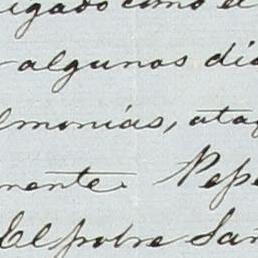 igado como el
algunos dia
lmonias, ata
mente Pepe
El pobre San